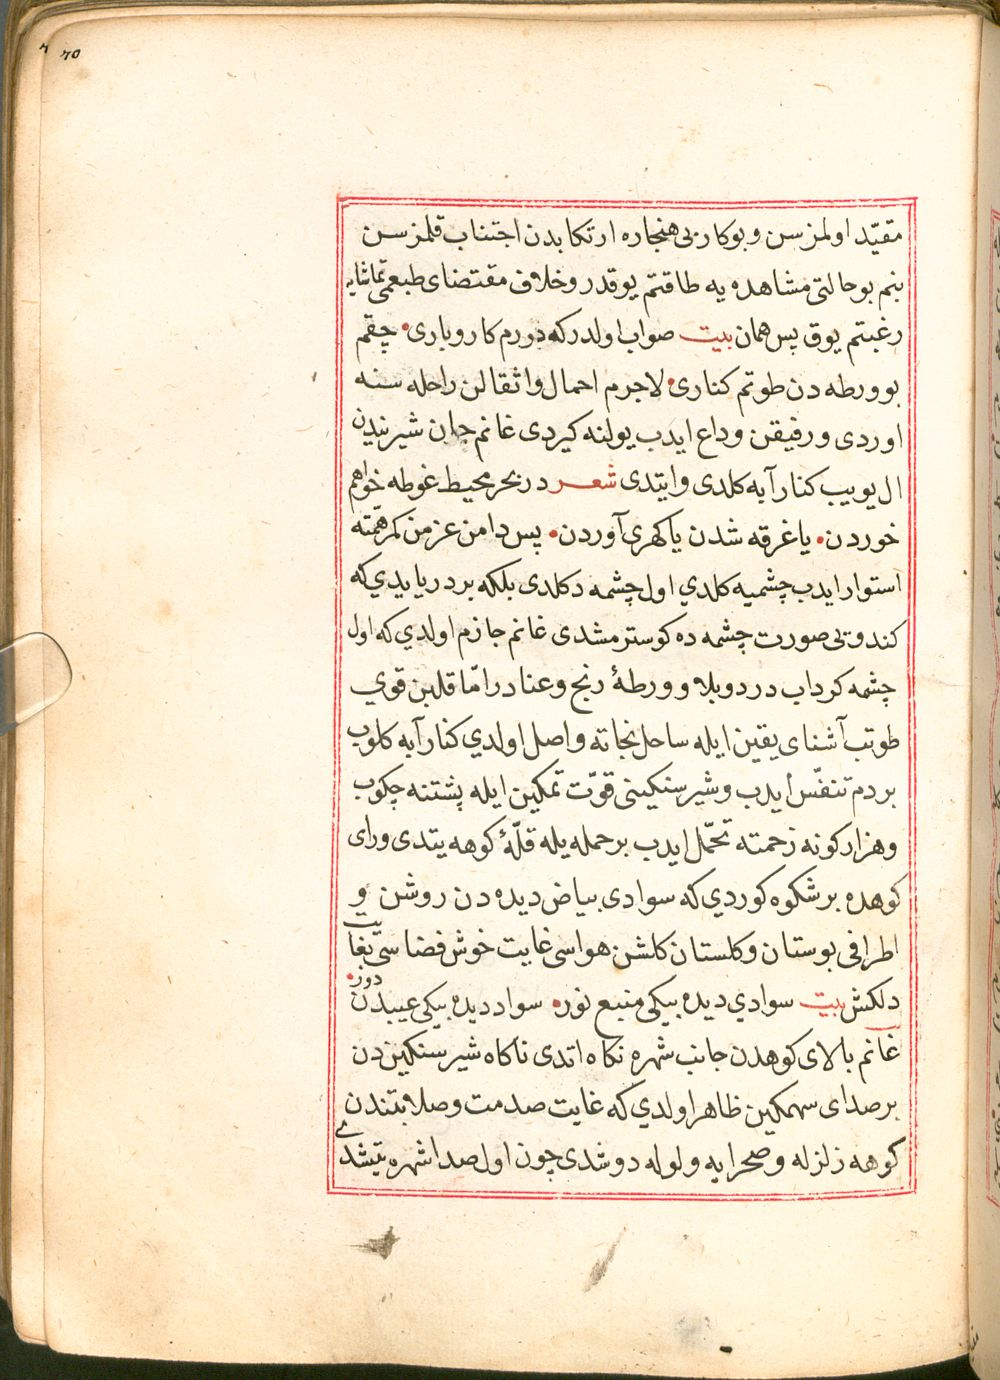 ۷۵
مقیّد اولمزسن و بو کار بی هنجاره ارتکابدن اجتناب قلمزسن
بنم بو حالتی مشاهده یه طاقتم یوقدر و خلاف مقتضای طبعمی تماشایه
رغبتم یوق پس همان بیت صواب اولدر که دورم کار و باری • چقم
بو ورطه دن طوتم کناری • لاجرم احمال و اثقالن راحله سنه
اوردی و رفیقن وداع ایدب یولنه کیردی غانم جان شیرنیدن
ال یویب کنار آبه کلدی و ایتدی شعر در بحر محیط غوطه خواهم
خوردن • یا غرقه شدن یا کهری آوردن • پس دامن عزمن کمر همّته
استوار ایدب چشمیه کلدی اول چشمه دکلدی بلکه بر دریایدی که
کندوبی صورت چشمه ده کوسترمشدی غانم جازم اولدی که اول
چشمه کرداب درد و بلا و ورطۀ رنج و عنادر امّا قلبن قوی
طوتب آشنای یقین ایله ساحل نجاته واصل اولدی کنار آبه کلوب
بردم تنفّس ایدب و شیر سنکینی قوّت تمکین ایله پشتنه چکوب
و هزار کونه زحمته تحمّل ایدب بر حمله یله قلّۀ کوهه یتدی ورای
کوهده بر شکوه کوردی که سوادی بیاض دیده دن روشن و
اطرافی بوستان و کلستان کلشن هواسی غایت خوش فضاسی بغایت
دلکش بیت سوادی دیده بیکی منبع نور • سواد دیده بیکی عیبدن دور •
غانم بالای کوهدن جانب شهره نکاه اتدی ناکاه شیر سنکیندن
بر صدای سهمکین ظاهر اولدی که غایت صدمت و صلابتندن
کوهه زلزله و صحرایه ولوله دوشدی چون اول صدا شهره یتشدی